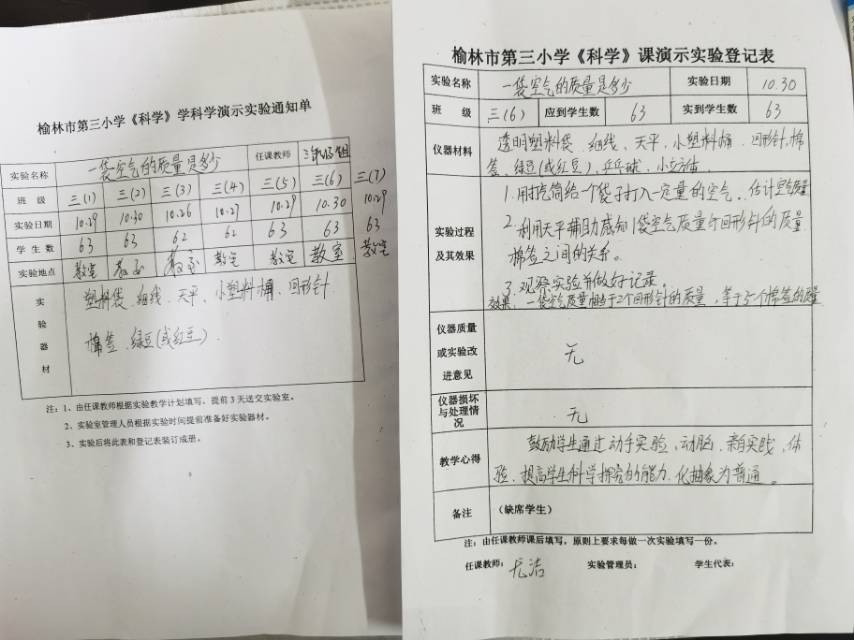 榆林市第三小学《科学》学科学演示实验通知单
实验名称 一袋空气的质量是多少 任课教师
班 级 三(1) 三(2) 三(3) 三(4) 三(5) 三(6) 三(7)
实验日期 10.29 10.30 10.26 10.27 10.29 10.30 10.29
学 生 数 63 63 62 62 63 63 63
实验地点 教室 教室 教室 教室 教室 教室 教室
实验器材 塑料袋、细线、天平、小塑料桶、回形针
棉签、绿豆(或红豆)
注：1、由任课教师根据实验教学计划填写，提前3天送交实验室。
2、实验室管理人员根据实验时间提前准备好实验器材。
3、实验后将此表和登记表装订成册。
榆林市第三小学《科学》课演示实验登记表
实验名称 一袋空气的质量是多少 实验日期 10.30
班 级 三(6) 应到学生数 63 实到学生数 63
仪器材料 透明塑料袋、细线、天平、小塑料桶、回形针、棉
签、绿豆(或红豆)、乒乓球、小立方体
实验过程及其效果 1.用打气筒给一个袋子打入一定量的空气。估计空气质量
2.利用天平辅助感知1袋空气质量个回形针的质量
棉签之间的关系。
3.观察实验并做好记录。
效果：一袋空气质量相当于2个回形针的质量，等于5个棉签的质量
仪器质量或实验改进意见 无
仪器损坏与处理情况 无
教学心得 鼓励学生通过动手实验，动脑，亲自实践，体
验、提高学生科学探究的能力、化抽象为普通。
备注 （缺席学生）
注：由任课教师课后填写，原则上要求每做一次实验填写一份。
任课教师：尤洁 实验管理员： 学生代表：